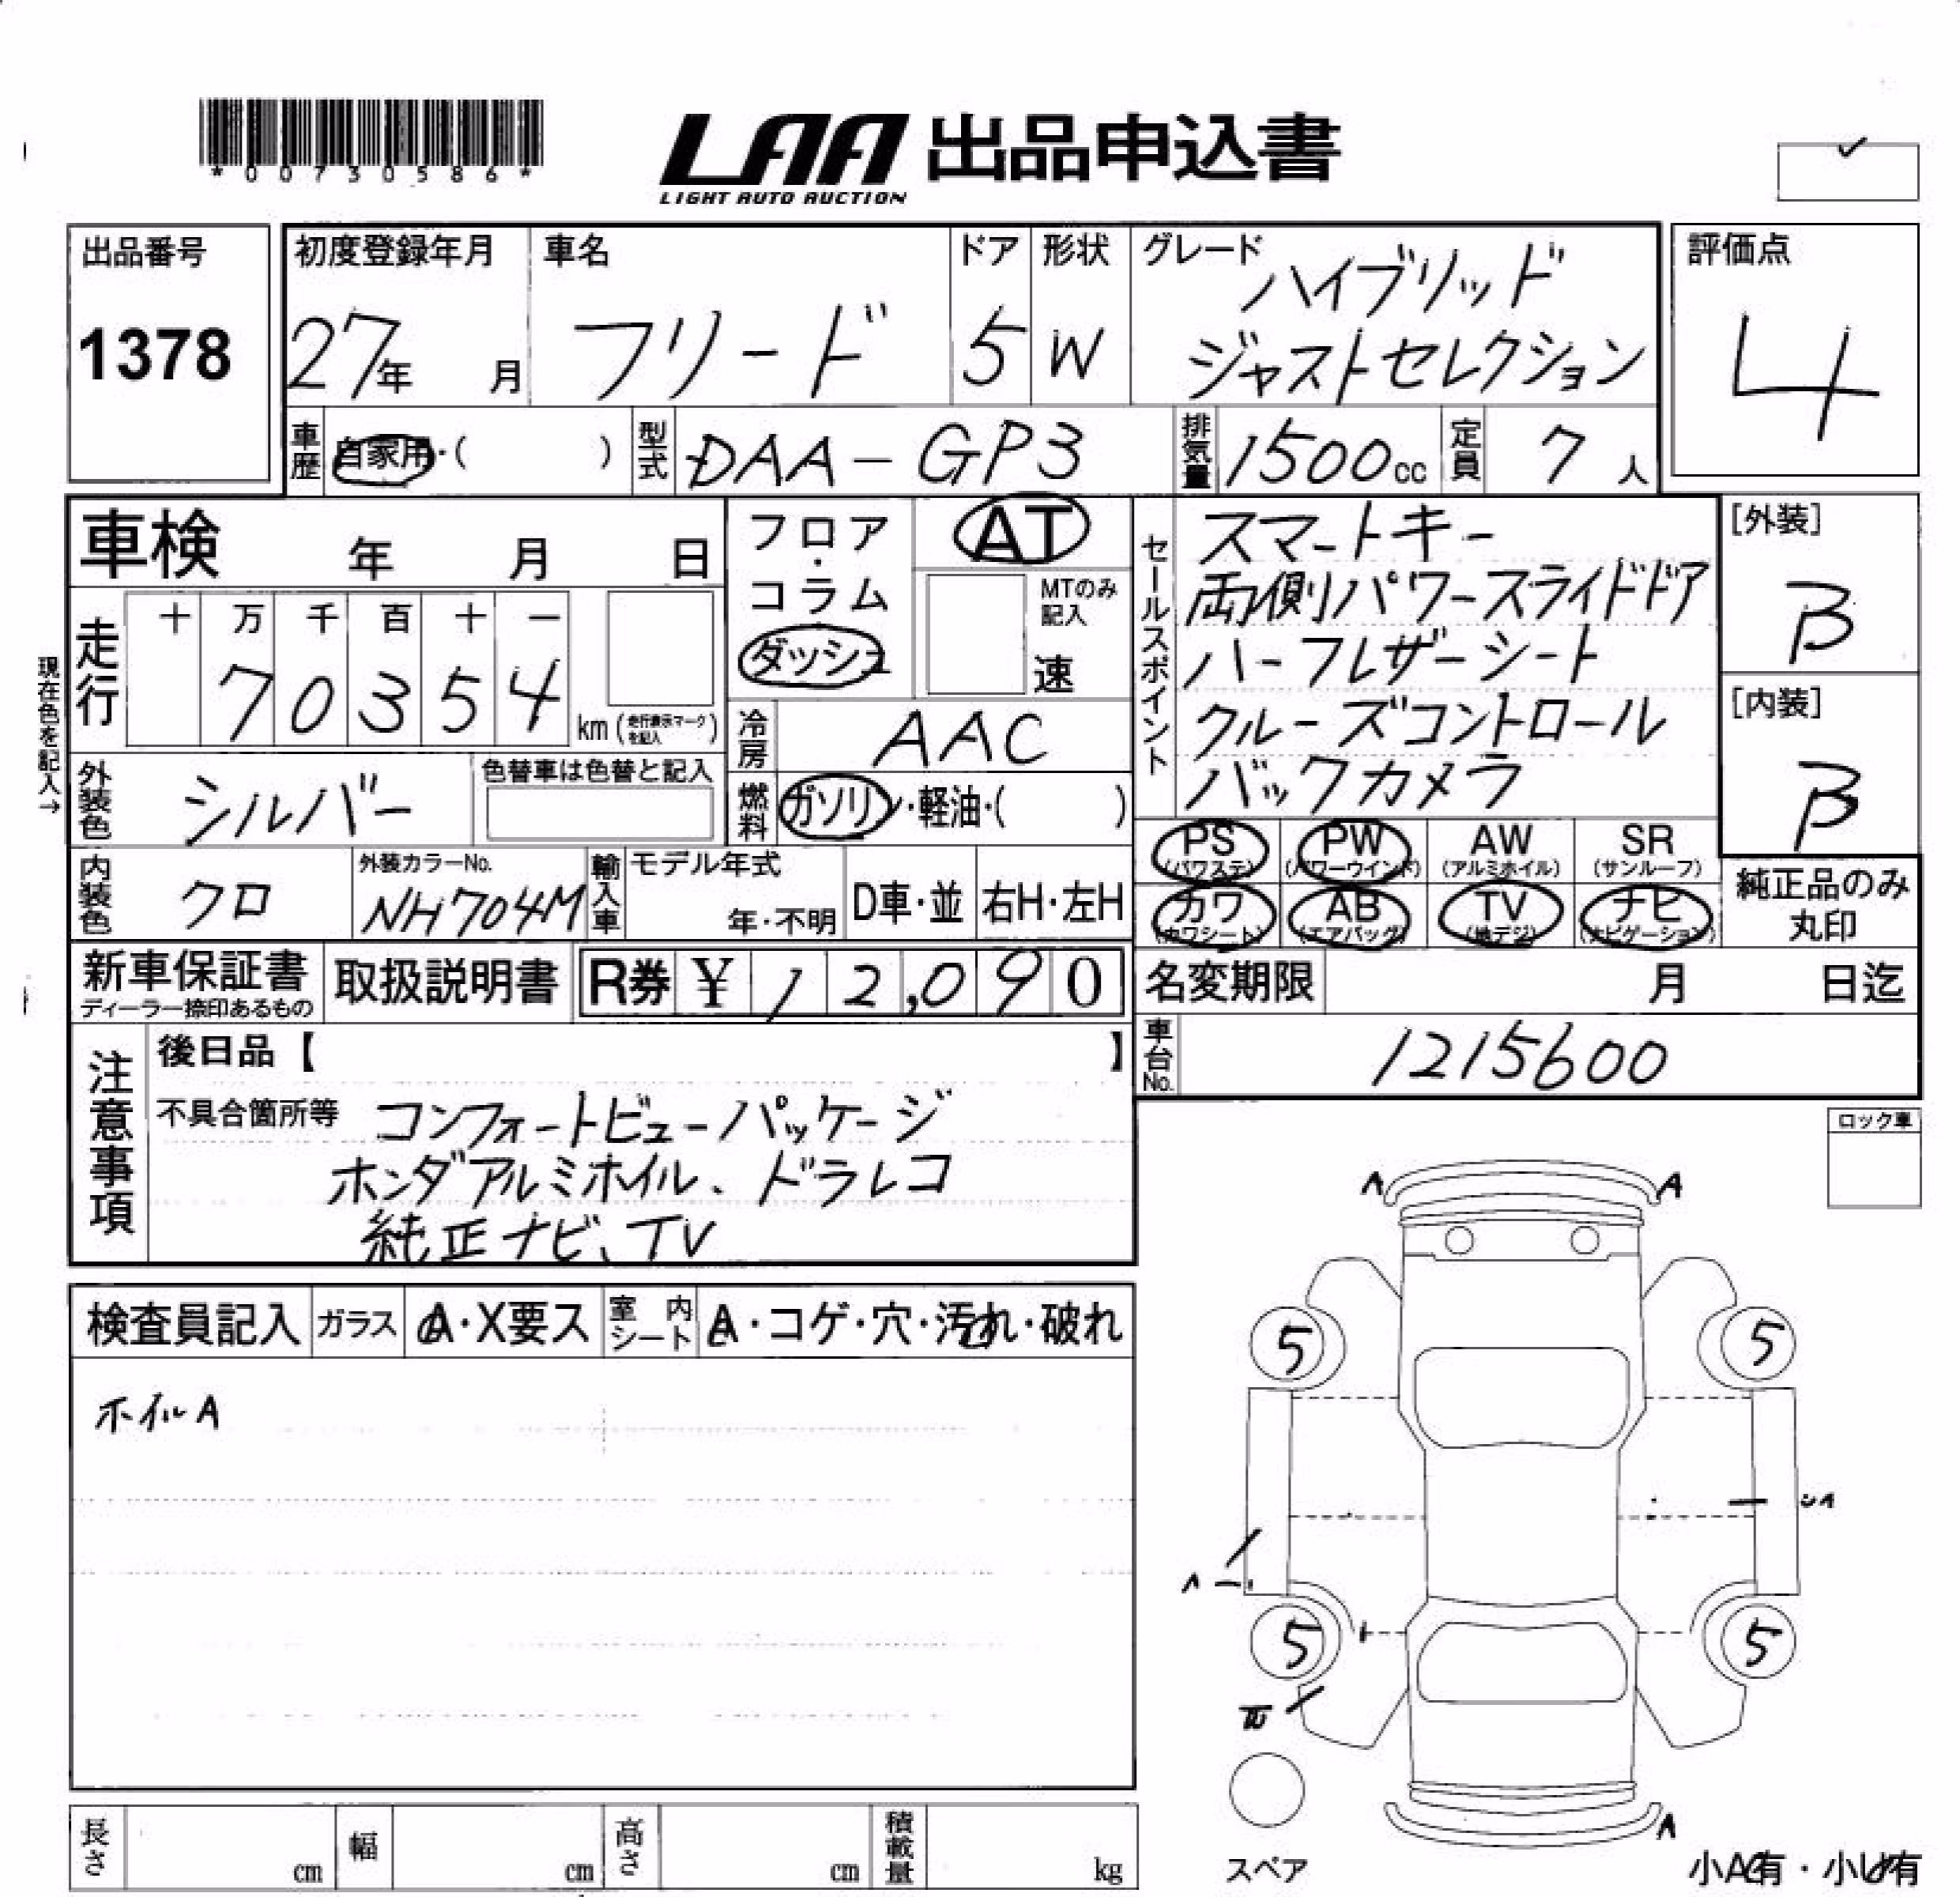 *00730586*
LAA 出品申込書
LIGHT AUTO AUCTION
出品番号
1378
初度登録年月
27年 月
車名
フリード
ドア
5
形状
W
グレード
ハイブリッド
ジャストセレクション
評価点
4
車歴 自家用・( )
型式 DAA-GP3
排気量 1500cc
定員 7人
車検 年 月 日
フロア・コラム
ダッシュ
AT
MTのみ記入
速
セールスポイント
スマートキー
両側パワースライドドア
ハーフレザーシート
クルーズコントロール
バックカメラ
[外装]
B
[内装]
B
現在色を記入→
走行
十 万 千 百 十 一
7 0 3 5 4
km (走行表示マークを記入)
冷房 AAC
外装色 シルバー
色替車は色替と記入
燃料 ガソリン・軽油・( )
PS (パワステ)
PW (パワーウインド)
AW (アルミホイル)
SR (サンルーフ)
カワ (カワシート)
AB (エアバッグ)
TV (地デジ)
ナビ (ナビゲーション)
純正品のみ
丸印
内装色 クロ
外装カラーNo.
NH704M
輸入車
モデル年式
年・不明
D車・並
右H・左H
新車保証書
ディーラー捺印あるもの
取扱説明書
R券 ¥ 12,090
名変期限 月 日迄
車台No. 1215600
注意事項
後日品【 】
不具合箇所等 コンフォートビューパッケージ
ホンダアルミホイル、ドラレコ
純正ナビ、TV
ロック車
検査員記入
ガラス A・X要ス
室内シート A・コゲ・穴・汚れ・破れ
ホイルA
A A
5 5
A
5 5
A
スペア
小A有・小U有
長さ cm
幅 cm
高さ cm
積載量 kg